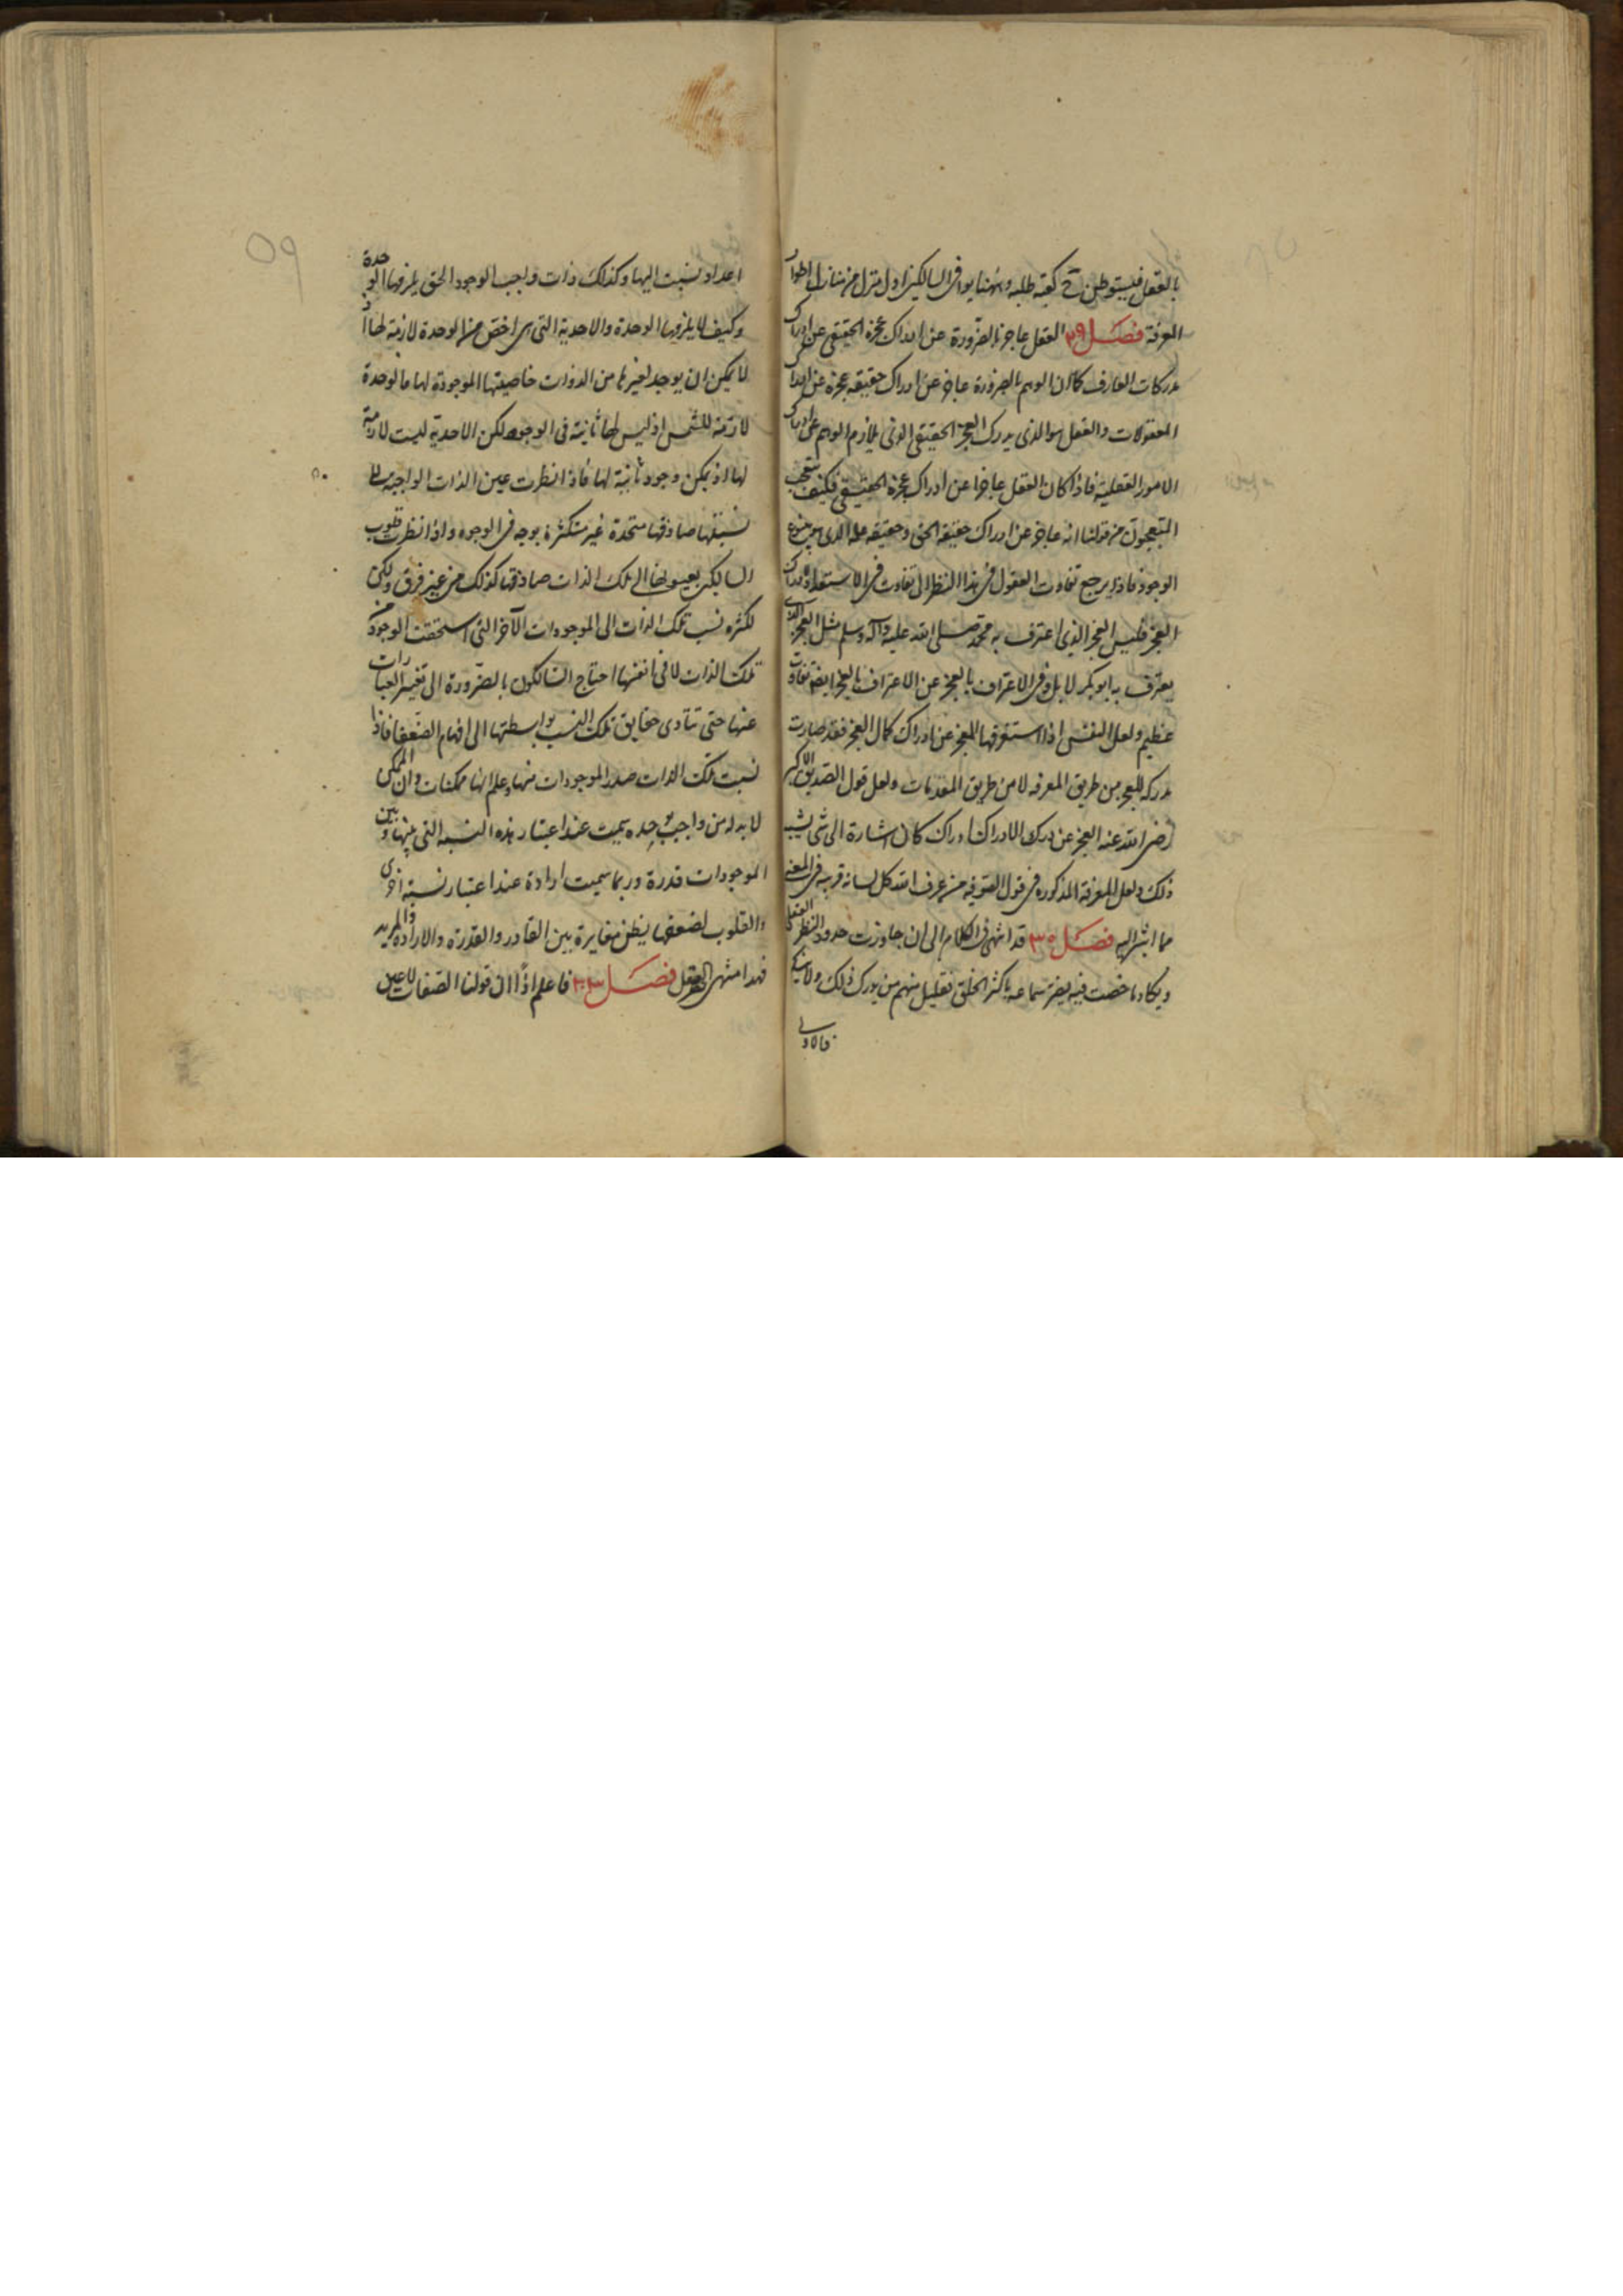 بالعقل فليستوطن ح كعبة طلبه وههنا يوافى السالكين اول منزل من منازل اطوار
المعرفة فصل ٢٩ العقل عاجز بالضرورة عن ادراك عجزه الحقيقى عن ادراك
مدركات العارف كما ان الوهم بالضرورة عاجز عن ادراك حقيقة عجزه عن ادراك
المعقولات والعقل هو الذى يدرك العجز الحقيقى الذى يلازم الوهم عن ادراك
الامور العقلية فاذا كان العقل عاجزا عن ادراك عجزه الحقيقى فكيف يتعجب
المتعجبون من قولنا انه عاجز عن ادراك حقيقة الحق وحقيقة علمه الذى هو ينبوع
الوجود فاذا يرجع تفاوت العقول فى هذا النظر الى تفاوت فى الاستعداد لادراك
العجز فليس العجز الذى اعترف به محمد صلى الله عليه وآله وسلم مثل العجز الذى
يعترف به ابو بكر لا بل وفى الاعتراف بالعجز عن الاعتراف بالعجز ايضا تفاوت
عظيم ولعل النفس اذا استغرقها العجز عن ادراك كمال العجز فقد صارت
مدركة للعجز من طريق المعرفه لا من طريق المقدمات ولعل قول الصديق الاكبر
رضى الله عنه العجز عن درك الادراك ادراك كان اشارة الى شى يشبه
ذلك ولعل المعرفة المذكوره فى قول الصوفيه من عرف الله كل لسانه قريبه فى المعنى
مما اشير اليه فصل ٣٠ قد انتهى فى الكلام الى ان جاوزت حدود النظر العقلى
ويكاد ما خضت فيه يضر سماعه باكثر الخلق فقليل منهم من يدرك ذلك ولا
فالاولى
٥٩
اعداد نسبت اليها وكذلك ذات واجب الوجود الحق يلزمها الوحدة
وكيف لا يلزمها الوحدة والاحدية التى هى اخص من الوحدة لازمة لها اذ
لا يمكن ان يوجد لغيرها من الذوات خاصيتها الموجودة لها فالوحدة
لازمة للشمس اذ ليس لها ثانية فى الوجود لكن الاحدية ليست لازمة
لها اذ يمكن وجود ثانية لها فاذا نظرت عين الذات الواجبة الى
نسبتها صادفتها متحدة غير متكثرة بوجه فى الوجوه واذا نظرت قلوب
السالكين بعيونها الى تلك الذات صادفتها كذلك من غير فرق ولكن
لكثره نسب تلك الذات الى الموجودات الآخر التى استحقت الوجود من
تلك الذات لا فى انفسها احتاج السالكون بالضرورة الى تغيير العبارات
عنها حتى تتادى حقايق تلك النسب بواسطتها الى افهام الضعفا فاذا
نسبت تلك الذات صدر الموجودات منها وعلم انها ممكنات وان الممكن
لا بد له من واجب يوجده سميت عند اعتبار هذه النسبه التى بينها وبين
الموجودات قدرة وربما سميت ارادة عند اعتبار نسبة اخرى
والقلوب لضعفها يظن مغايرة بين القادر والقدرة والارادة والمريد
فهذا منتهى نظر العقل فصل فاعلم اذًا ان قولنا الصفات لا عين